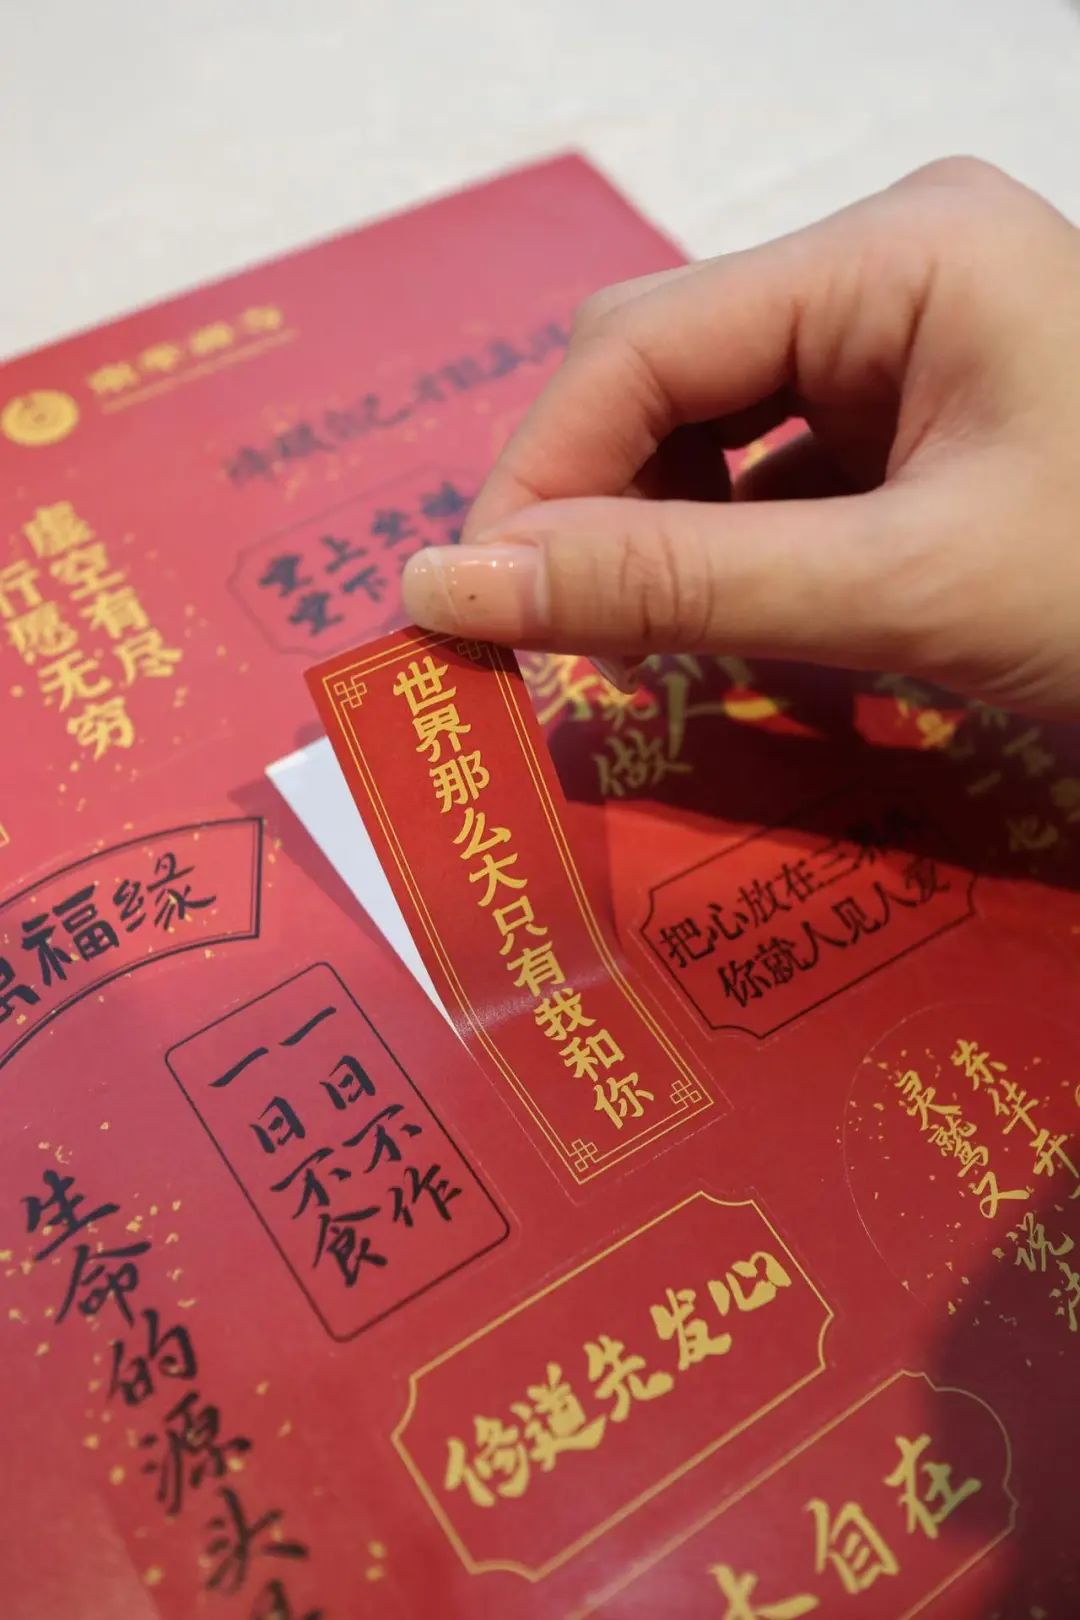 虚空有尽
行愿无穷
堂上坐
堂下
世界那么大只有我和你
做人
把心放在三
你就人见人爱
福缘
一日不作
一日不食
东华开
灵鹫又说法
生命的源头
修道先发心
自在